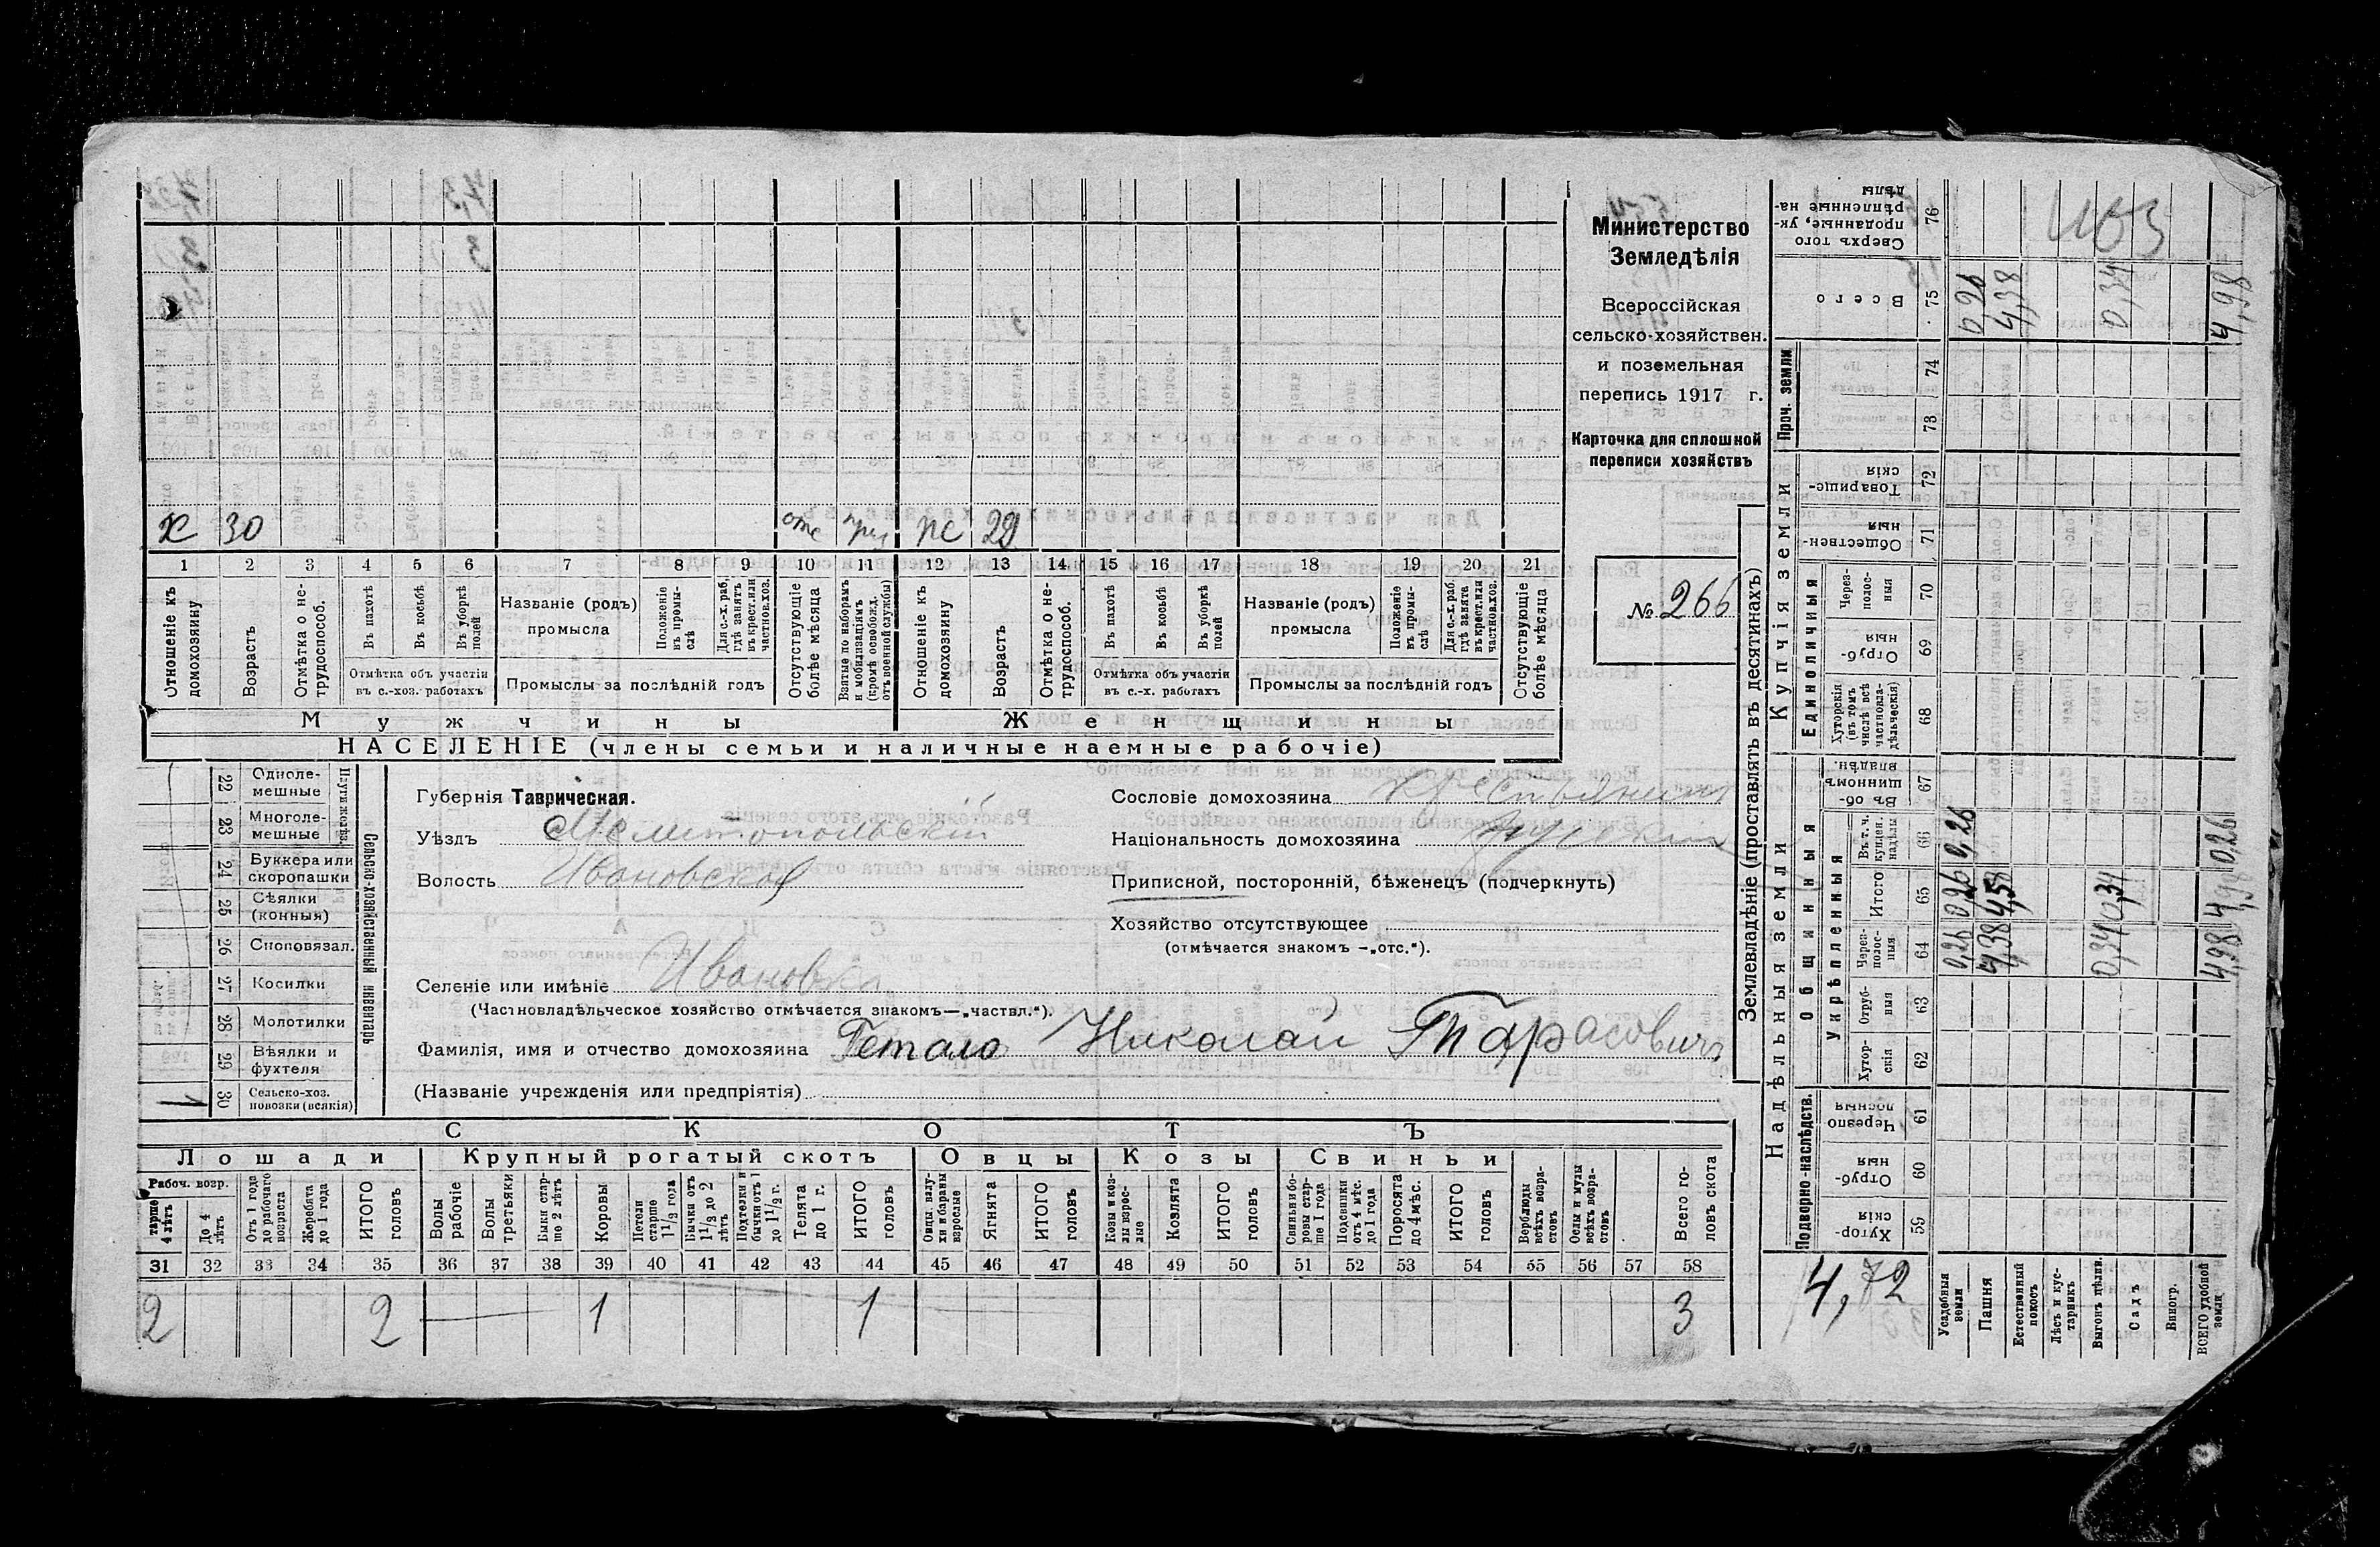 Министерство
Земледѣлія
Всероссійская
сельско-хозяйствен.
и поземельная
перепись 1917 г.
Карточка для сплошной
переписи хозяйствъ
№ 266
х 30 отс пс 29
1 2 3 4 5 6 7 8 9 10 11 12 13 14 15 16 17 18 19 20 21
Отношеніе къ домохозяину
Возрастъ
Отмѣтка о не-трудоспособ.
Въ пахотѣ
Въ косьбѣ
Въ уборкѣ полей
Отмѣтка объ участіи
въ с.-хоз. работахъ
Названіе (родъ)
промысла
Положеніе въ промы-слѣ
Для с.-х. раб. гдѣ занятъ въ крест. или частнов. хоз.
Промыслы за послѣдній годъ
Отсутствующіе болѣе мѣсяца
Взятые по наборамъ и мобилизаціямъ (кромѣ освобожд. отъ военной службы)
Отношеніе къ домохозяину
Возрастъ
Отмѣтка о не-трудоспособ.
Въ пахотѣ
Въ косьбѣ
Въ уборкѣ полей
Отмѣтка объ участіи
въ с.-х. работахъ
Названіе (родъ)
промысла
Положеніе въ промы-слѣ
Для с.-х. раб. гдѣ занята въ крест. или частнов. хоз.
Промыслы за послѣдній годъ
Отсутствующіе болѣе мѣсяца
Мужчины Женщины
НАСЕЛЕНІЕ (члены семьи и наличные наемные рабочіе)
Сельско-хозяйственный инвентарь
22 Одноле-мешные
23 Многоле-мешные
24 Буккера или скоропашки
25 Сѣялки (конныя)
26 Сноповязал.
27 Косилки
28 Молотилки
29 Вѣялки и фухтеля
1 30 Сельско-хоз. повозки (всякія)
Губернія Таврическая.
Уѣздъ Мелитопольскій
Волость Ивановская
Селеніе или имѣніе Ивановка
(Частновладѣльческое хозяйство отмѣчается знакомъ—„частвл.“).
Фамилія, имя и отчество домохозяина Гетало Николай Тарасовичъ
(Названіе учрежденія или предпріятія)
Сословіе домохозяина крестьянинъ
Національность домохозяина русскій
Приписной, посторонній, бѣженецъ (подчеркнуть)
Хозяйство отсутствующее
(отмѣчается знакомъ —„отс.“).
СКОТЪ
Лошади Крупный рогатый скотъ Овцы Козы Свиньи
Рабоч. возр.
старше 4 лѣтъ
До 4 лѣтъ
Отъ 1 года до рабочаго возраста
Жеребята до 1 года
ИТОГО головъ
Волы рабочіе
Волы третьяки
Быки стар-ше 2 лѣтъ
Коровы
Нетели старше 1 1/2 года
Бычки отъ 1 1/2 до 2 лѣтъ
Подтелки и бычки отъ 1 до 1 1/2 г.
Телята до 1 г.
ИТОГО головъ
Овцы, валу-хи и бараны взрослые
Ягнята
ИТОГО головъ
Козы и коз-лы взрос-лые
Козлята
ИТОГО головъ
Свиньи и бо-ровы стар-ше 1 года
Подсвинки отъ 4 мѣс. до 1 года
Поросята до 4 мѣс.
ИТОГО головъ
Верблюды всѣхъ возра-стовъ
Ослы и мулы всѣхъ возра-стовъ
Всего го-ловъ скота
31 32 33 34 35 36 37 38 39 40 41 42 43 44 45 46 47 48 49 50 51 52 53 54 55 56 57 58
2 2 1 1 3
Землевладѣніе (проставлять въ десятинахъ)
Надѣльныя земли
Подворно-наслѣдств.
Хутор-скія 59
Отруб-ныя 60
Черезпо-лосныя 61
Общинныя
Укрѣпленныя
Хутор-скія 62
Отруб-ныя 63
Через-полос-ныя 64
Итого 65
Въ т. ч. купчен. надѣлы 66
Въ об-щинномъ владѣн. 67
Купчія земли
Единоличныя
Хуторскія (въ томъ числѣ всѣ частновла-дѣльческія) 68
Отруб-ныя 69
Через-полос-ныя 70
Обществен-ныя 71
Товарище-скія 72
Проч. земли
73 74
Всего 75
Сверхъ того проданные, ук-рѣпленные на-дѣлы 76
4,72
Усадебныя земли 0,26 0,26 0,26 0,26
Пашня 4,38 4,38 4,38
Естественный покосъ
Лѣсъ и кус-тарникъ
Выгонъ цѣлин. 0,34 0,34 0,34
Садъ
Виногр.
ВСЕГО удобной земли 4,98 4,98 0,26 4,98